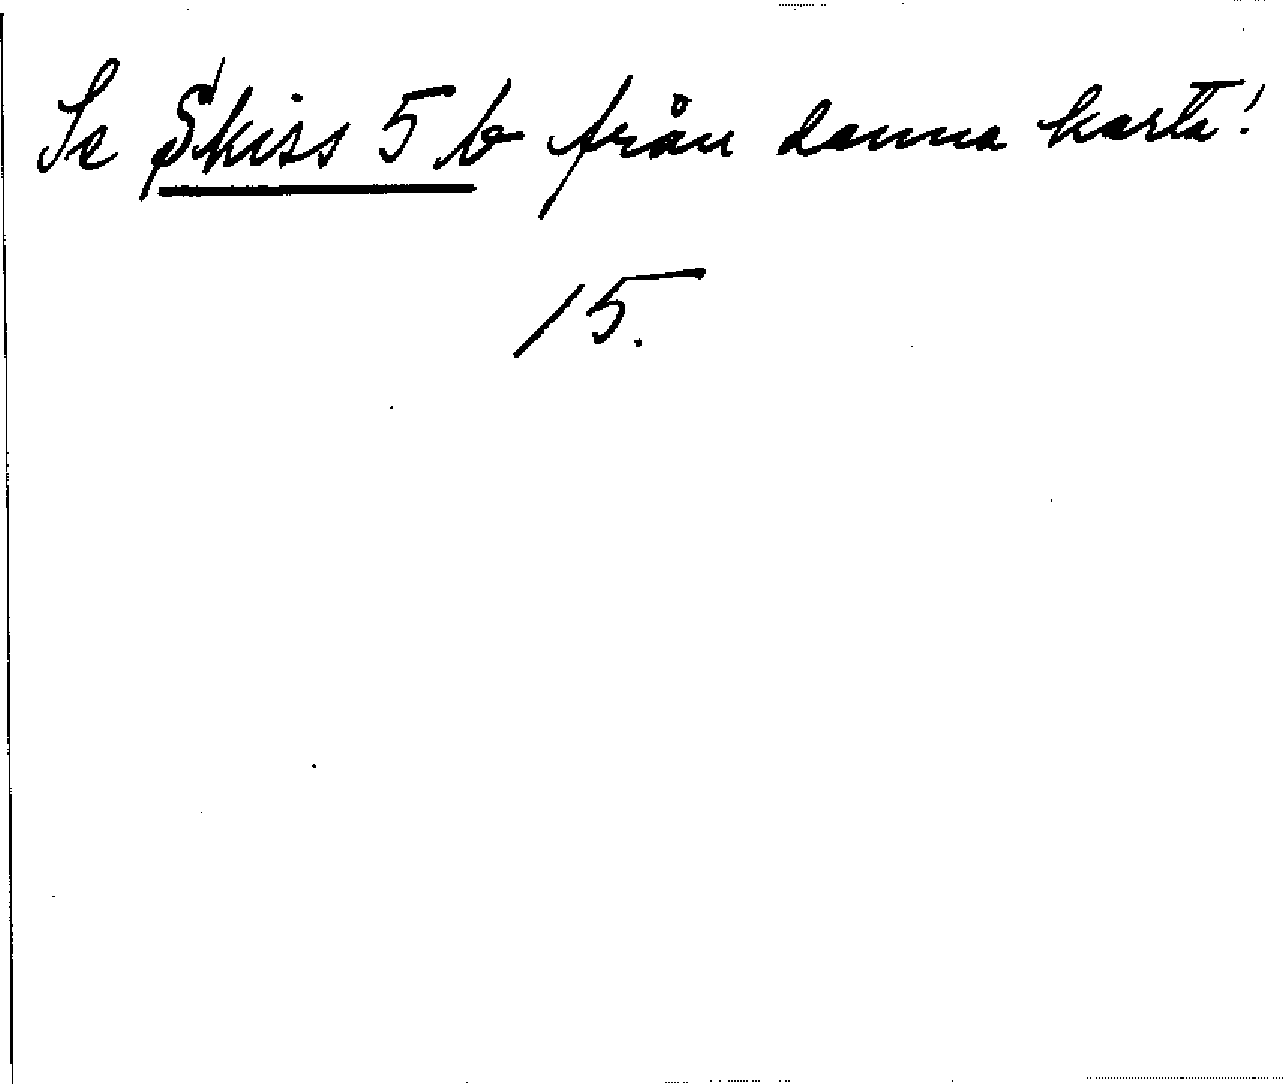 Se Skiss 5 b från denna karta!
15.